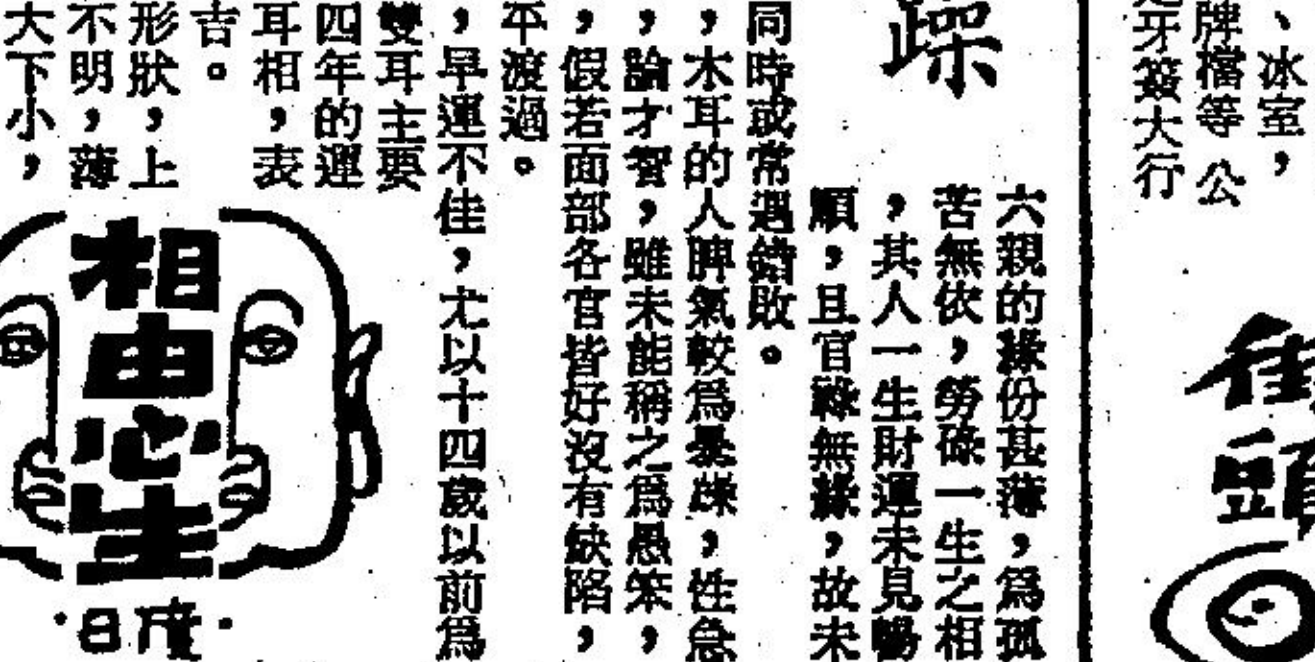 、冰室，
牌檔等公
牙簽大行
街頭
躁
六親的緣份甚薄，爲孤
苦無依，勞碌一生之相
，其人一生財運未見暢
順，且官祿無緣，故未
同時或常遇錯敗。
，木耳的人脾氣較爲暴燥，性急
，論才智，雖未能稱之爲愚笨，
，假若面部各官皆好沒有缺陷，
平渡過。
，早運不佳，尤以十四歲以前爲
雙耳主要
四年的運
耳相，表
吉。
形狀，上
不明，薄
大下小，
相由心生
·度日·